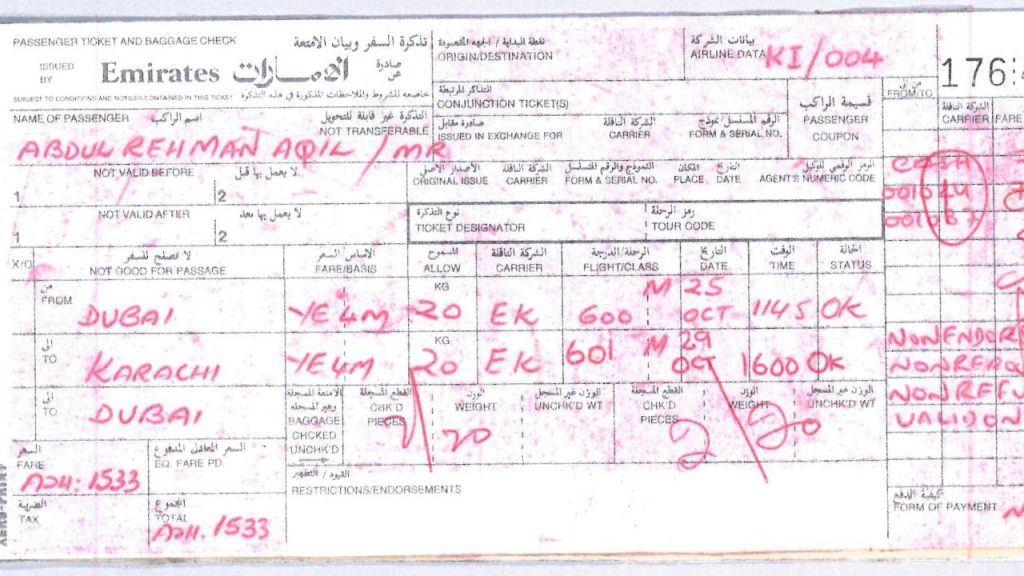 PASSENGER TICKET AND BAGGAGE CHECK تذكرة السفر وبيان الامتعة
ISSUED BY Emirates الإمارات صادرة عن
SUBJECT TO CONDITIONS AND NOTICES CONTAINED IN THIS TICKET خاضعه للشروط والملاحظات المذكورة في هذه التذكرة
نقطة البداية / الجهه المقصودة
ORIGIN/DESTINATION
بيانات الشركة
AIRLINE DATA KI/004
التذاكر المرتبطة
CONJUNCTION TICKET(S)
من الى
FROM/TO
176:
NAME OF PASSENGER اسم الراكب
التذكرة غير قابلة للتحويل
NOT TRANSFERABLE
صادرة مقابل
ISSUED IN EXCHANGE FOR
الشركة الناقلة
CARRIER
الرقم المسلسل نموذج
FORM & SERIAL NO.
قسيمة الراكب
PASSENGER COUPON
الشركة الناقلة
CARRIER FARE
ABDUL REHMAN AQIL / MR
NOT VALID BEFORE لا يعمل بها قبل
1 2
الاصدار الأصلي
ORIGINAL ISSUE
الشركة الناقلة
CARRIER
النموذج والرقم المسلسل
FORM & SERIAL NO.
المكان
PLACE
التاريخ
DATE
الرمز الرقمي للوكيل
AGENT'S NUMERIC CODE
CASH
NOT VALID AFTER لا يعمل بها بعد
1 2
نوع التذكرة
TICKET DESIGNATOR
رمز الرحلة
TOUR CODE
X/O
لا تصلح للسفر
NOT GOOD FOR PASSAGE
الأساس السعر
FARE/BASIS
المسموح
ALLOW
الشركة الناقلة
CARRIER
الرحلة/الدرجة
FLIGHT/CLASS
التاريخ
DATE
الوقت
TIME
الحالة
STATUS
من
FROM DUBAI YE4M KG 20 EK 600 M 25 OCT 1145 OK
الى
TO KARACHI YE4M KG 20 EK 601 M 29 OCT 1600 OK
الى
TO DUBAI
NONENDOR
NONREFU
VALID ON
الأمتعة المسجلة وغير المسجله
BAGGAGE CHCKED UNCHK'D
القطع المسجلة
CHK'D PIECES 2
الوزن
WEIGHT 20
الوزن غير المسجل
UNCHK'D WT
القطع المسجلة
CHK'D PIECES 2
الوزن
WEIGHT 20
الوزن غير المسجل
UNCHK'D WT
السعر
FARE
السعر المعادل المدفوع
EQ. FARE PD.
القيود / التظهير
RESTRICTIONS/ENDORSEMENTS
1533
الضريبة
TAX
المجموع
TOTAL
1533
كيفية الدفع
FORM OF PAYMENT